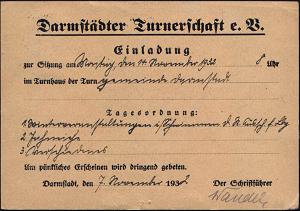 Darmstädter Turnerschaft e. V.
Einladung
zur Sitzung am Montag, den 14. November 1932 8 Uhr
im Turnhaus der Turngemeinde Darmstadt
Tagesordnung:
1.
2.
3. Verschiedenes
Um pünktliches Erscheinen wird dringend gebeten.
Darmstadt, den 7. November 1932 Der Schriftführer